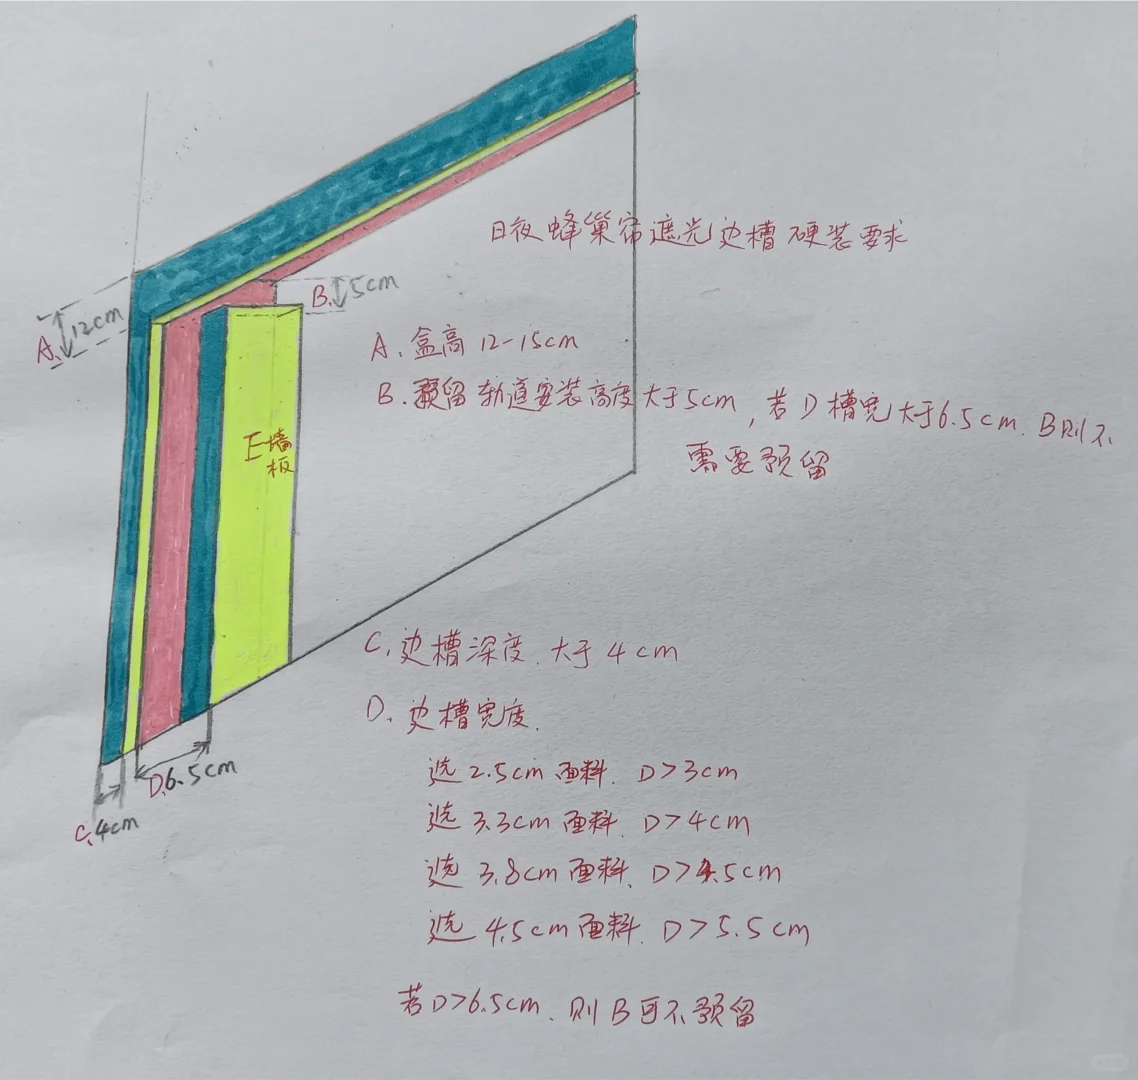 日夜蜂巢帘遮光边槽硬装要求
B. 5cm
A. 12cm
A. 盒高 12-15cm
B. 预留轨道安装高度大于5cm, 若D槽宽大于6.5cm. B则不
需要预留
E墙
板
C. 边槽深度. 大于4cm
D. 边槽宽度.
选2.5cm面料. D>3cm
D.6.5cm
选3.3cm面料. D>4cm
C.4cm
选3.8cm面料. D>4.5cm
选4.5cm面料. D>5.5cm
若D>6.5cm. 则B可不预留